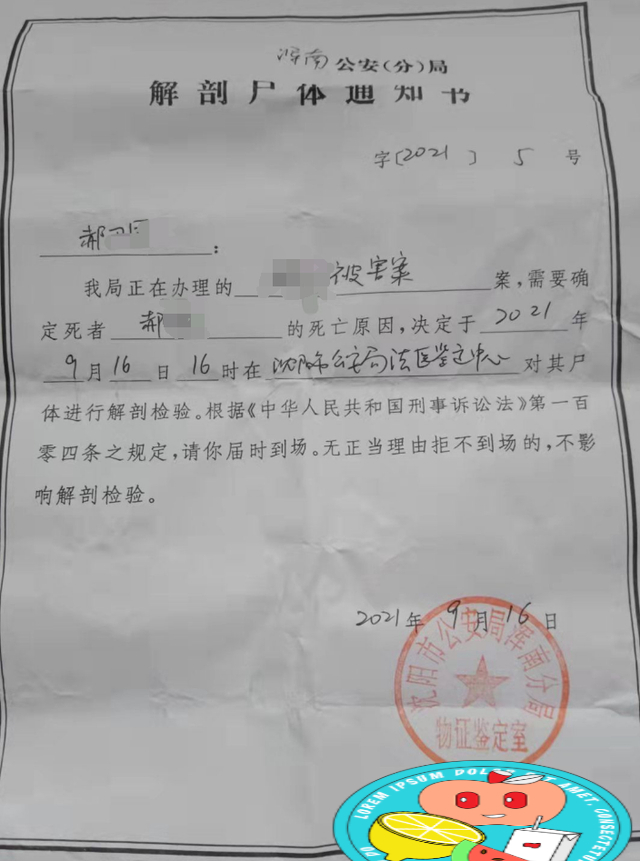 浑南公安(分)局
解剖尸体通知书
字[2021]5号
郝:
我局正在办理的被害案案,需要确
定死者郝的死亡原因,决定于2021年
9月16日16时在沈阳市公安局法医鉴定中心对其尸
体进行解剖检验。根据《中华人民共和国刑事诉讼法》第一百
零四条之规定,请你届时到场。无正当理由拒不到场的,不影
响解剖检验。
2021年9月16日
沈阳市公安局浑南分局
物证鉴定室
LOREM IPSUM DOLOR SIT AMET, CONSECTETU